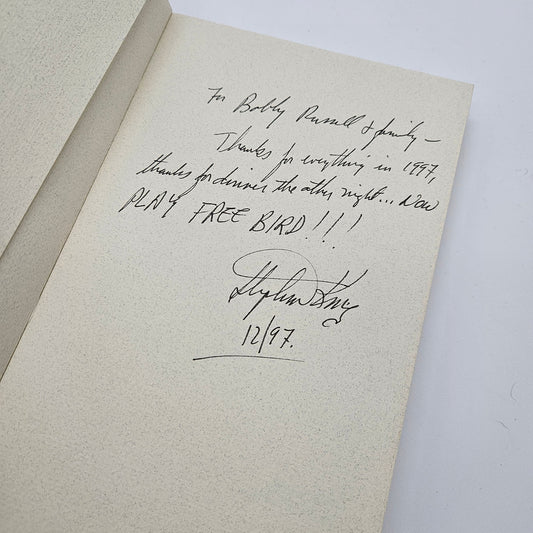 For Bobby Russell & family –
Thanks for everything in 1997,
thanks for dinner the other night... Now
PLAY FREE BIRD!!!
Stephen King
12/97.